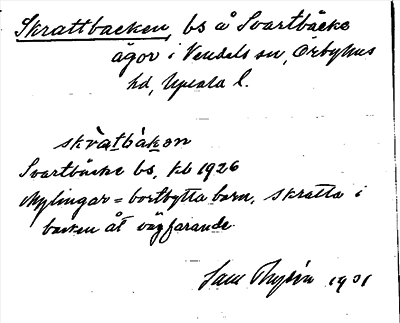 Skrattbacken, bs å Svartbäcks
ägor i Vendels sn, Örbyhus
hd, Upsala l.
skràtbàken
Svartbäcks bs, kb 1926
Mylingar = bortbytta barn, skratta i
backen åt vägfarande.
Sam 1931